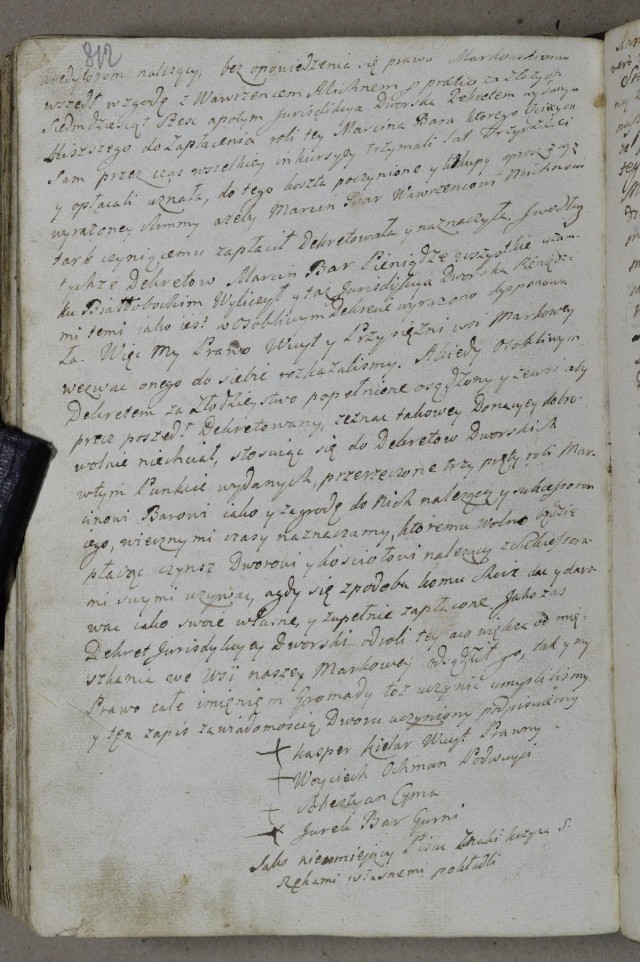 312
kredytorom należący, bez opowiedzenia się prawu Markowskiemu
wszedł w zgodę z Wawrzencem Michnem y pratio za złotych
siedmdziesiąt szesc apotym Jurisdikcya Dworska Dekretem wydanym
do zapłacenia roli tey Marcina Bara ktorego
sam przez czas wszelkiey inkursyey trzymali lat trzydziesci
y opłacali uznała, do tego koszta poczynione y oprocz
wyrażoney summy azeby Marcin Bar Wawrzencowi Michnowi
tark czyniącemu zapłacił Dekretowała y naznaczyła. Iwedług
tychże Dekretow Marcin Bar Pieniądze wszystkie
ku Białłobockim Wyliczył y taż Jurisdikcya Dworska Pieniędz-
mi temi iako iest w osobliwym Dekrecie wyrażono dysponowa
ła. Więc My Prawo Woyt y Przysiężni wsi Markowey
wezwac onego do siebie rozkazalismy. A kiedy osobliwym
Dekretem za złodzieystwo popełnione osądzony y zewsi aby
precz poszedł Dekretowany, zeznac takowey Donacyey dobro-
wolnie niechciał, stosuiąc się do Dekretow Dworskich
wtym Punkcie wydanych, przerzeczone trzy pręty roli Mar-
cinowi Barowi iako y zagrodę do nich należącą y sukcessorom
iego, wiecznymi czasy naznaczamy, ktoremu wolno będzie
płacąc czynsz Dworowi y kosciołowi należący z Sukcessora-
mi swymi uzywac, agdy się zpodoba komu chciec dac y daro-
wac iako swoie własne, y zupełnie zapłacone. Jako zas
Dekret Jurisdykcyey Dworski odroli tey aco większa od mie-
szkania we Wsi naszey Markowey odsądził go, tak y my
Prawo całe imięniem Gromady toż uczynic umyslilismy
y ten zapis zawiadomoscią Dworu uczyniony podpisuiemy
+ Kasper Kielar Woyt Prawny
+ Woyciech Ochman Podwoyci
+ Sobestyan Cyma
+ Jurek Bar Gurni
Jako nieumiejący Pisac Znaki krzyża S.
Rękami własnemi pokładli